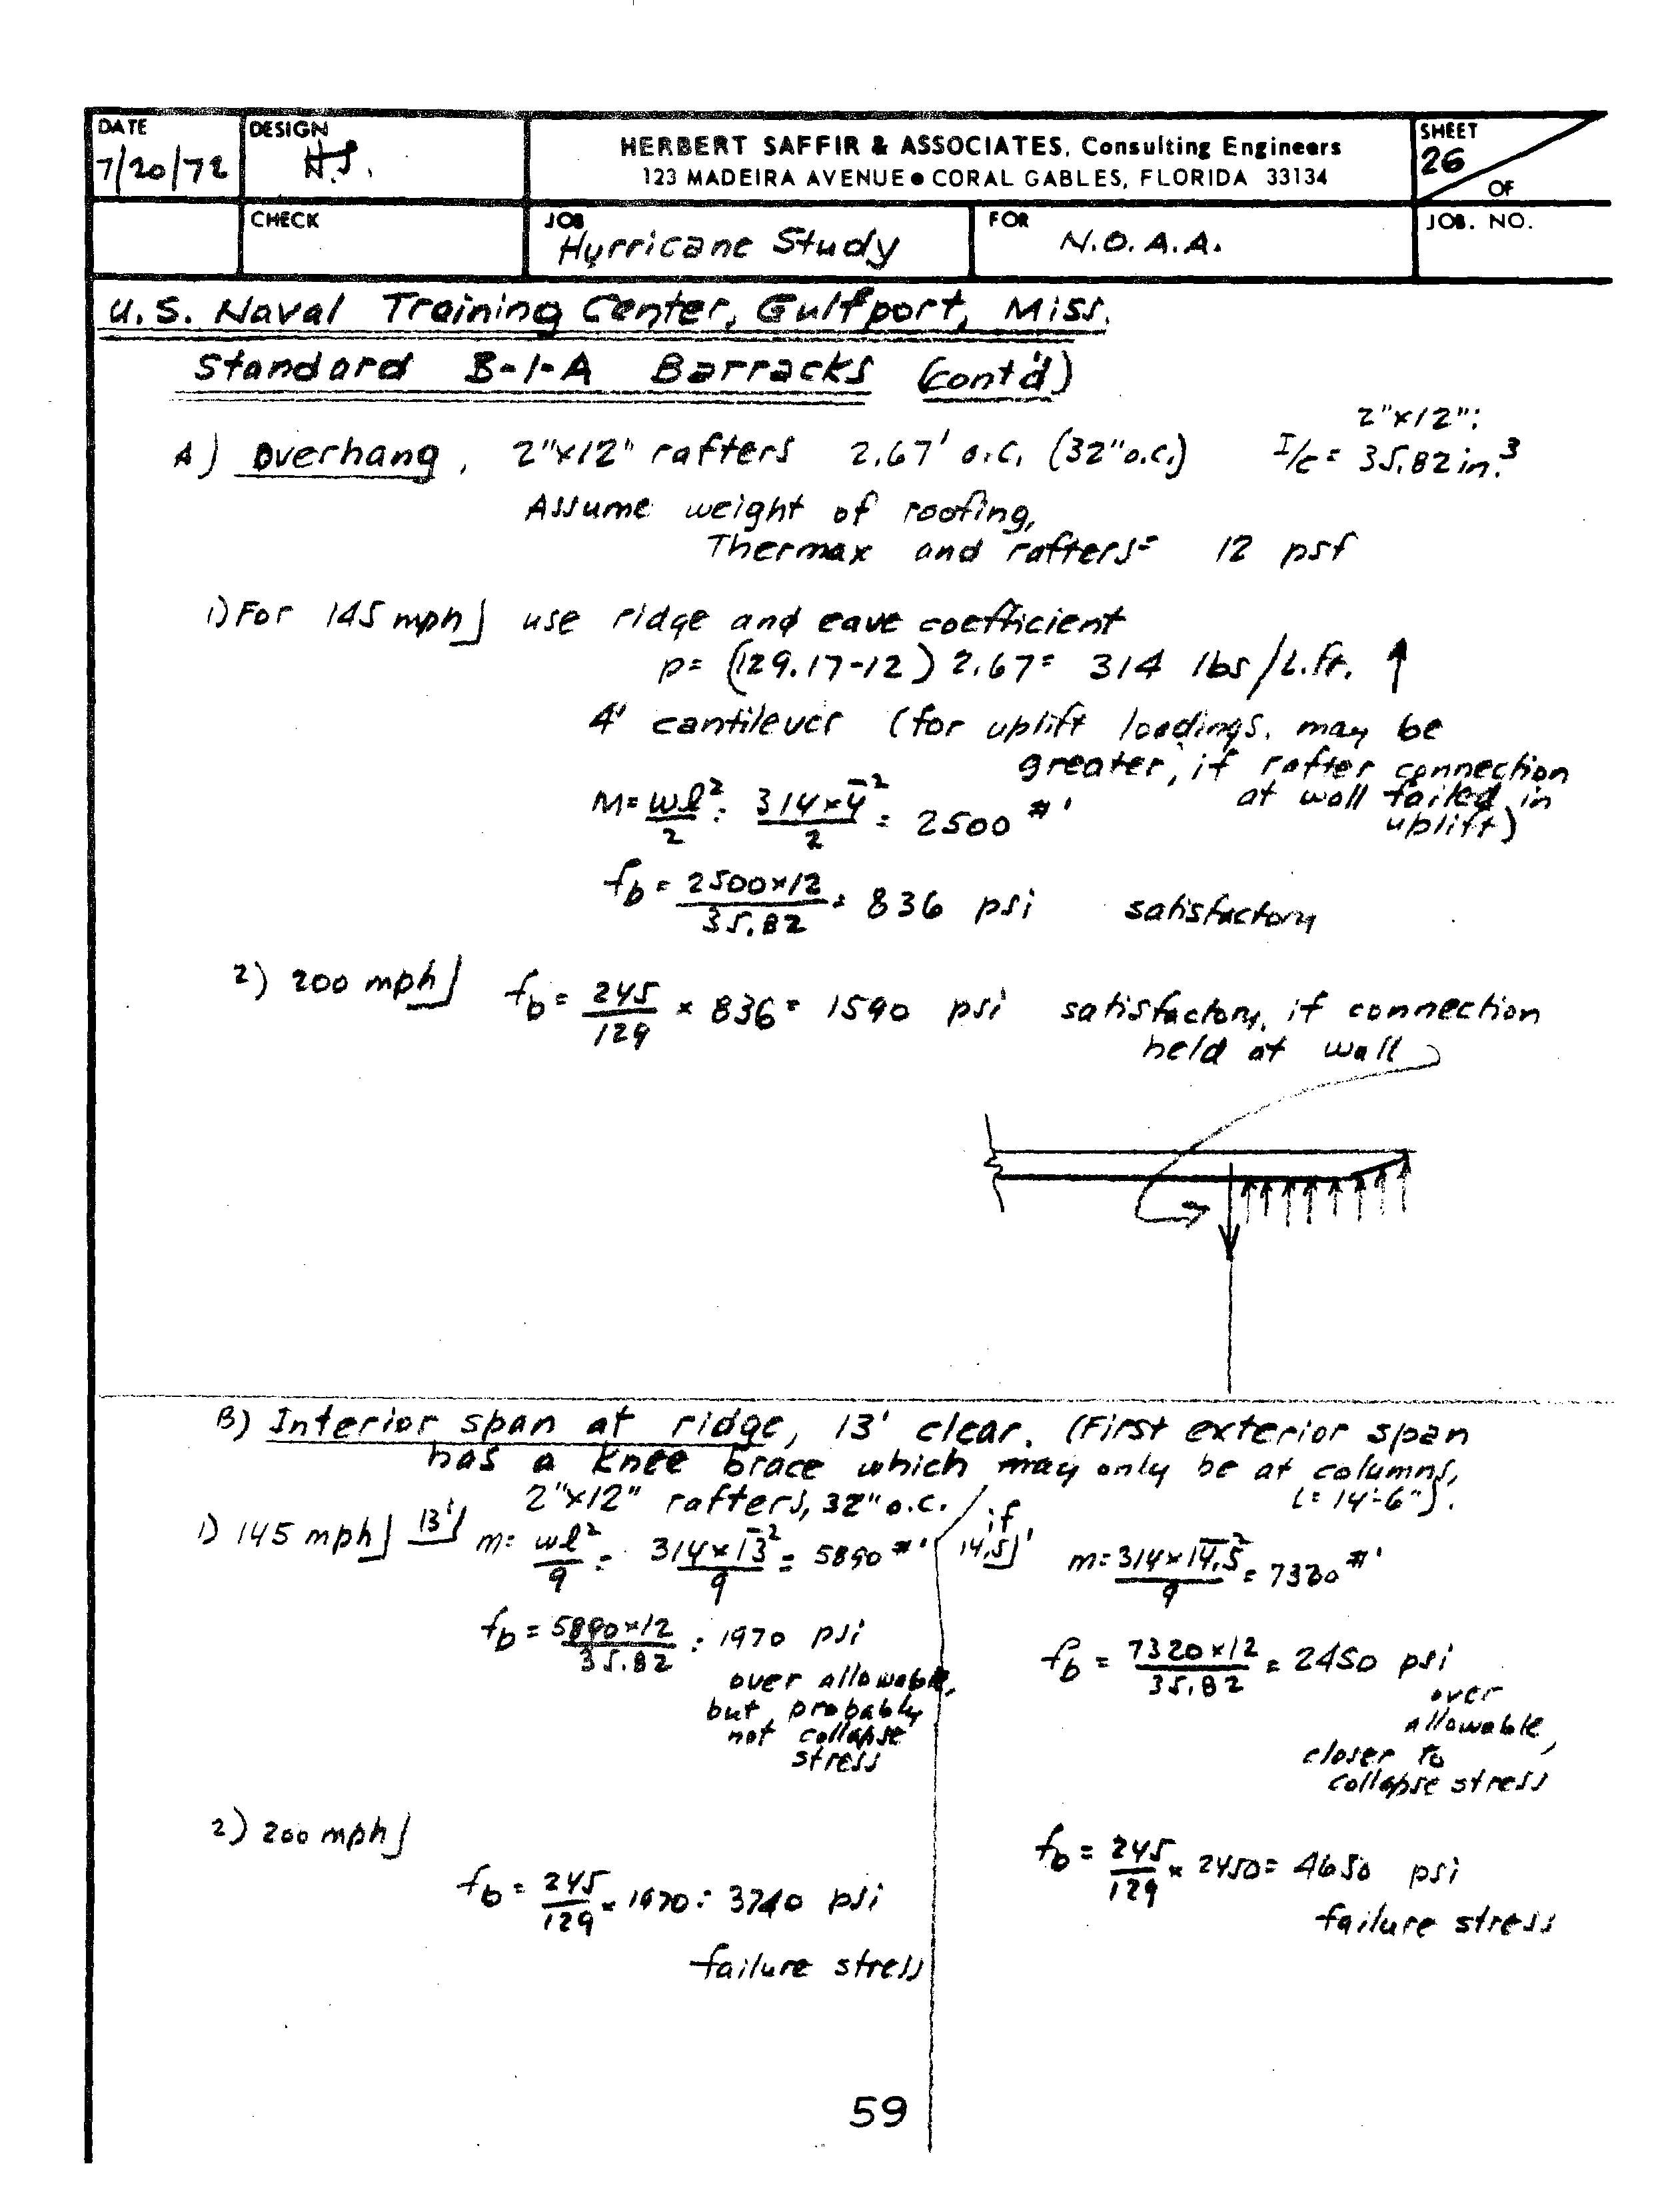 DATE
7/20/72
DESIGN
H.S.
HERBERT SAFFIR & ASSOCIATES, Consulting Engineers
123 MADEIRA AVENUE ● CORAL GABLES, FLORIDA 33134
SHEET
26
OF
CHECK
JOB
Hurricane Study
FOR
N.O.A.A.
JOB. NO.
U.S. Naval Training Center, Gulfport, Miss.
Standard B-1-A Barracks (cont'd)
A) Overhang, 2"x12" rafters 2.67' o.c. (32" o.c.)
2"x12":
I/c = 35.82 in.³
Assume weight of roofing,
Thermax and rafters = 12 psf
1) For 145 mph⌋ use ridge and eave coefficient
p= (129.17-12) 2.67= 314 lbs/L.ft. ↑
4' cantilever (for uplift loadings, may be
greater, if rafter connection
at wall failed in
uplift)
M= wl²/2 = 314x4²/2 = 2500 #'
fb = 2500x12/35.82 = 836 psi satisfactory
2) 200 mph⌋ fb = 245/129 x 836 = 1590 psi satisfactory, if connection
held at wall
B) Interior span at ridge, 13' clear. (First exterior span
has a knee brace which may only be at columns,
l = 14'-6").
2"x12" rafters, 32" o.c.
1) 145 mph⌋ 13'⌋ m= wl²/9 = 314x13²/9 = 5890 #'
fb = 5890x12/35.82 = 1970 psi
over allowable,
but probably
not collapse
stress
if
14.5⌋' m= 314x14.5²/9 = 7320 #'
fb = 7320x12/35.82 = 2450 psi
over
allowable,
closer to
collapse stress
2) 200 mph⌋
fb = 245/129 x 1970 = 3740 psi
failure stress
fb = 245/129 x 2450 = 4650 psi
failure stress
59